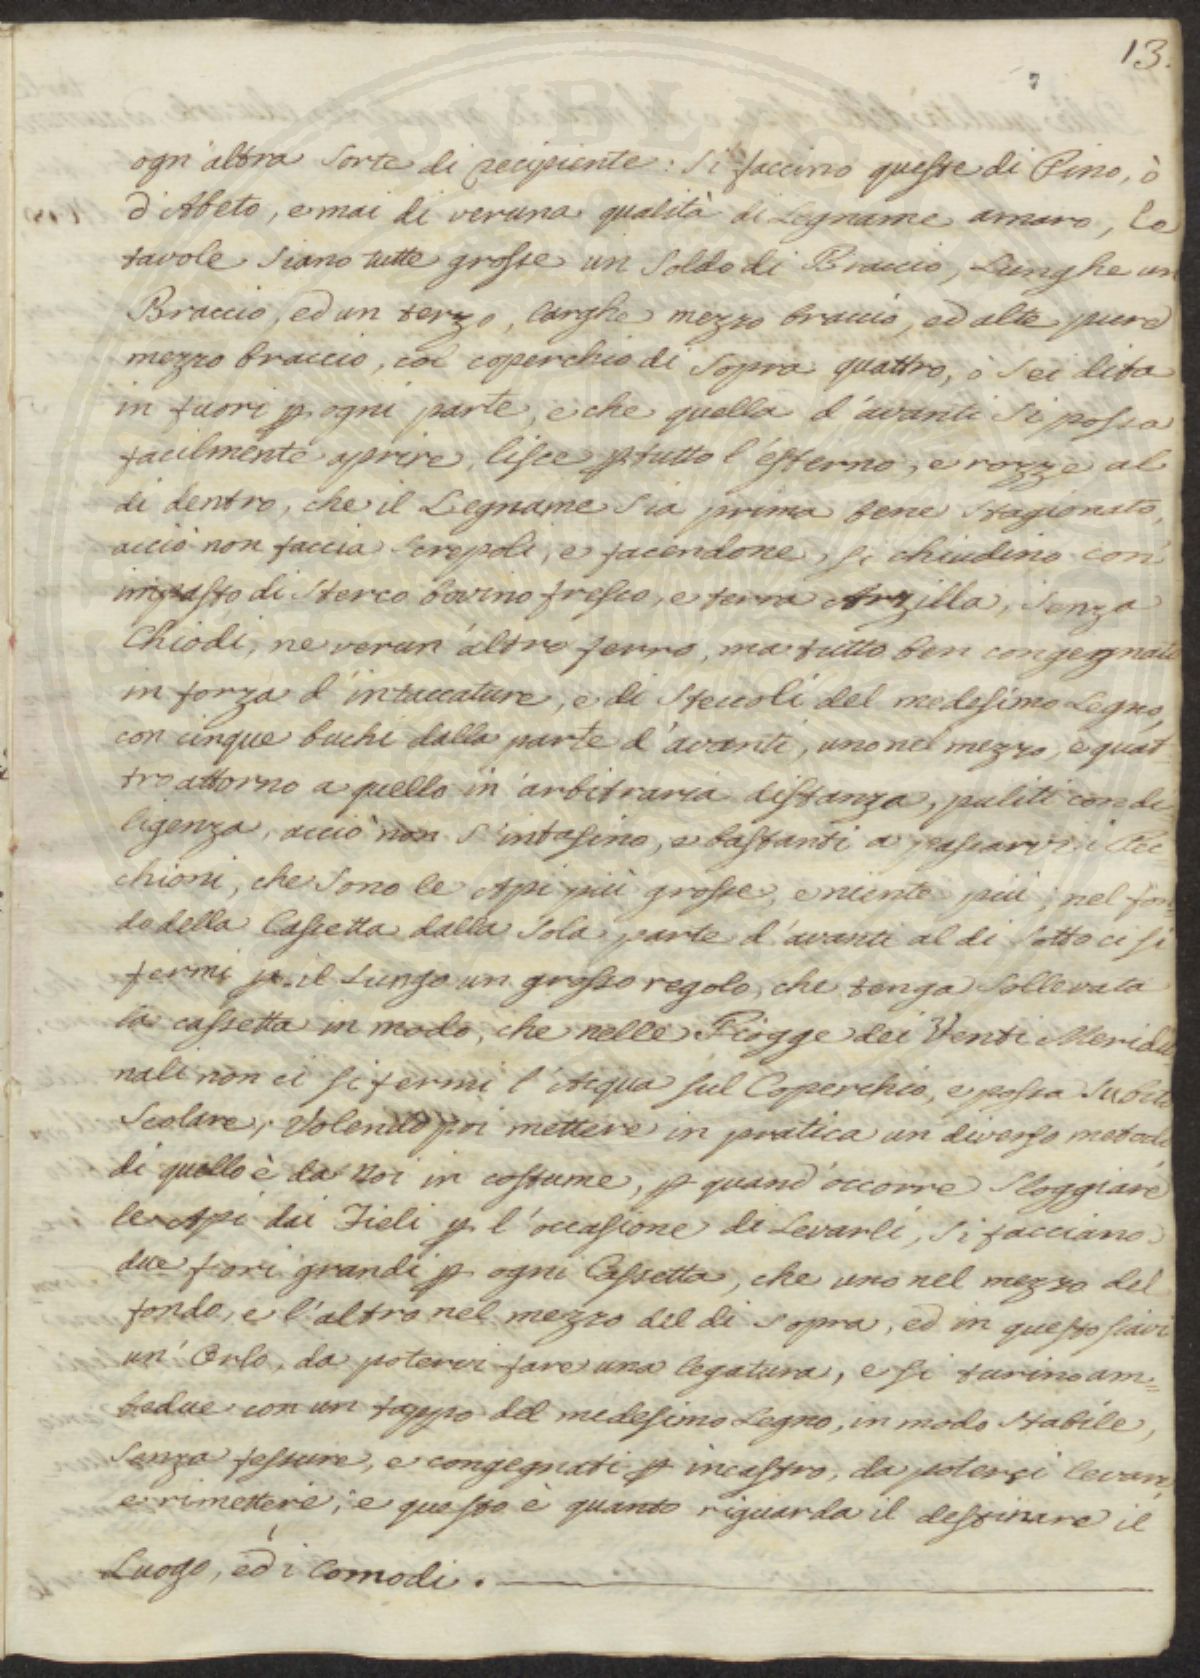 13.
7
ogn'altra sorte di recipiente: si faccino queste di Pino, ò
d'Abeto, e mai di veruna qualità di Legname amaro, le
tavole siano tutte grosse un soldo di Braccio, Lunghe un
Braccio, ed un terzo, larghe mezzo braccio, ed alte pure
mezzo braccio, col coperchio di sopra quattro, ò sei dita
in fuori p ogni parte, e che quella d'avanti si possa
facilmente aprire, lisce p tutto l'esterno, e rozze al
di dentro, che il Legname sia prima bene stagionato,
acciò non faccia screpoli, e facendone, si chiudino con
impasto di sterco bovino fresco, e terra Arzilla, senza
Chiodi, ne verun'altro ferro, ma tutto ben congegnato
in forza d'intaccature, e di steccoli del medesimo Legno,
con cinque buchi dalla parte d'avanti, uno nel mezzo, e quat
tro attorno a quello in arbitraria distanza, puliti con di
ligenza, acciò non s'intasino, e bastanti a passarvi i Pec
chioni, che sono le Api più grosse, e niente più; nel fon=
do della Cassetta dalla sola parte d'avanti al di sotto ci si
fermi p il Lungo un grosso regolo, che tenga sollevata
la cassetta in modo, che nelle Piogge dei Venti Meridio
nali non ci si fermi l'Acqua sul Coperchio, e possa subito
Scolare; Volendo poi mettere in pratica un diverso metodo
di quello è da Noi in costume, p quand'occorre sloggiare
le Api dai Fieli p l'occasione di Levarli, si facciano
due fori grandi p ogni Cassetta, che uno nel mezzo del
fondo, e l'altro nel mezzo del di sopra, ed in questo siavi
un'Orlo, da potervi fare una legatura, e si turino am=
bedue con un tappo del medesimo Legno, in modo stabile,
senza fessure, e congegnati p incastro, da potersi levare
e rimettere; e questo è quanto riguarda il destinare il
Luogo, ed i Comodi.